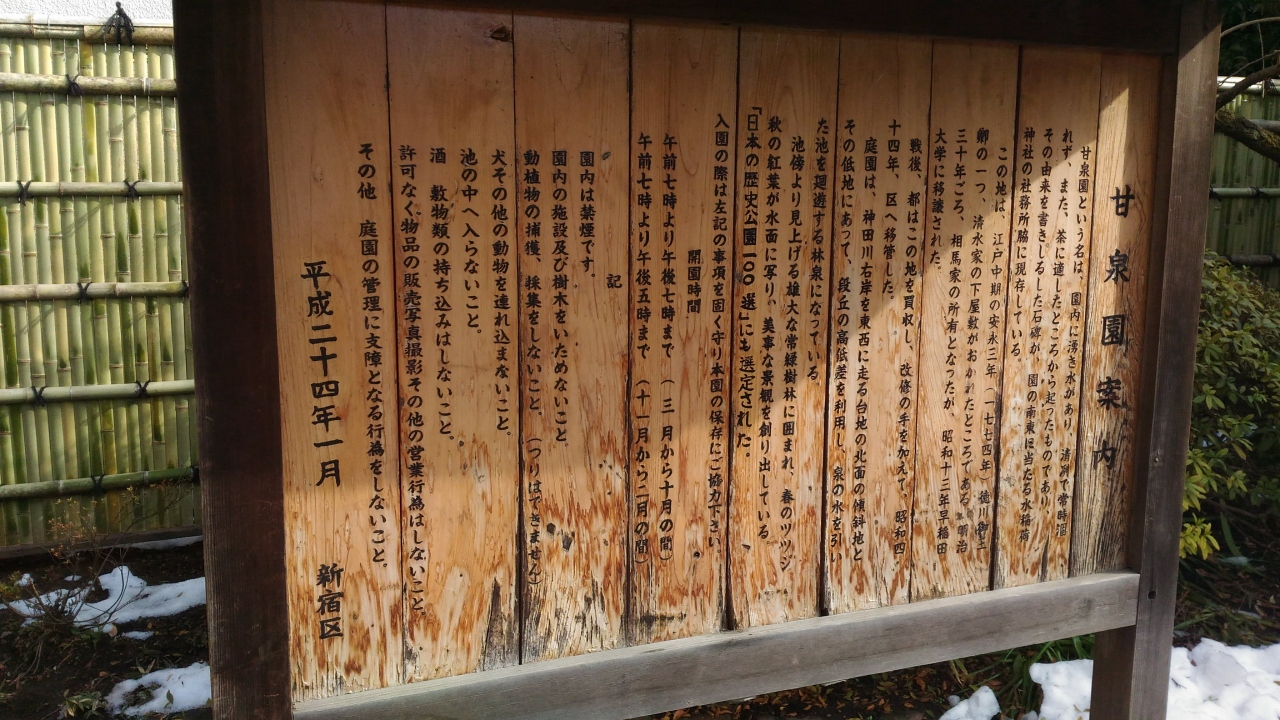 甘泉園案内
甘泉園という名は、園内に湧き水があり 清冽で常時涸
れず、また、茶に適したところから起ったものであり
その由来を書きしるした石碑が 園の南東に当たる水稲荷
神社の社務所脇に現存している。
この地は、江戸中期の安永三年（一七七四年）徳川御三
卿の一つ、清水家の下屋敷がおかれたところである。明治
三十年ごろ、相馬家の所有となったが 昭和十三年早稲田
大学に移譲された。
戦後、都はこの地を買収し、改修の手を加えて、昭和四
十四年、区へ移管した。
庭園は、神田川右岸を東西に走る台地の北面の傾斜地と
その低地にあって、段丘の高低差を利用し、泉の水を引い
た池を廻遊する林泉になっている
池傍より見上げる雄大な常緑樹林に囲まれ、春のツツジ
秋の紅葉が水面に写り、美事な景観を創り出している
「日本の歴史公園一〇〇選」にも選定された。
入園の際は左記の事項を固く守り本園の保存にご協力下さい
開園時間
午前七時より午後七時まで（三月から十月の間）
午前七時より午後五時まで（十一月から二月の間）
記
園内は禁煙です。
園内の施設及び樹木をいためないこと。
動植物の捕獲、採集をしないこと（つりはできません）
犬その他の動物を連れ込まないこと。
池の中へ入らないこと。
酒 敷物類の持ち込みはしないこと。
許可なく物品の販売写真撮影その他の営業行為はしないこと。
その他 庭園の管理に支障となる行為をしないこと。
平成二十四年一月 新宿区